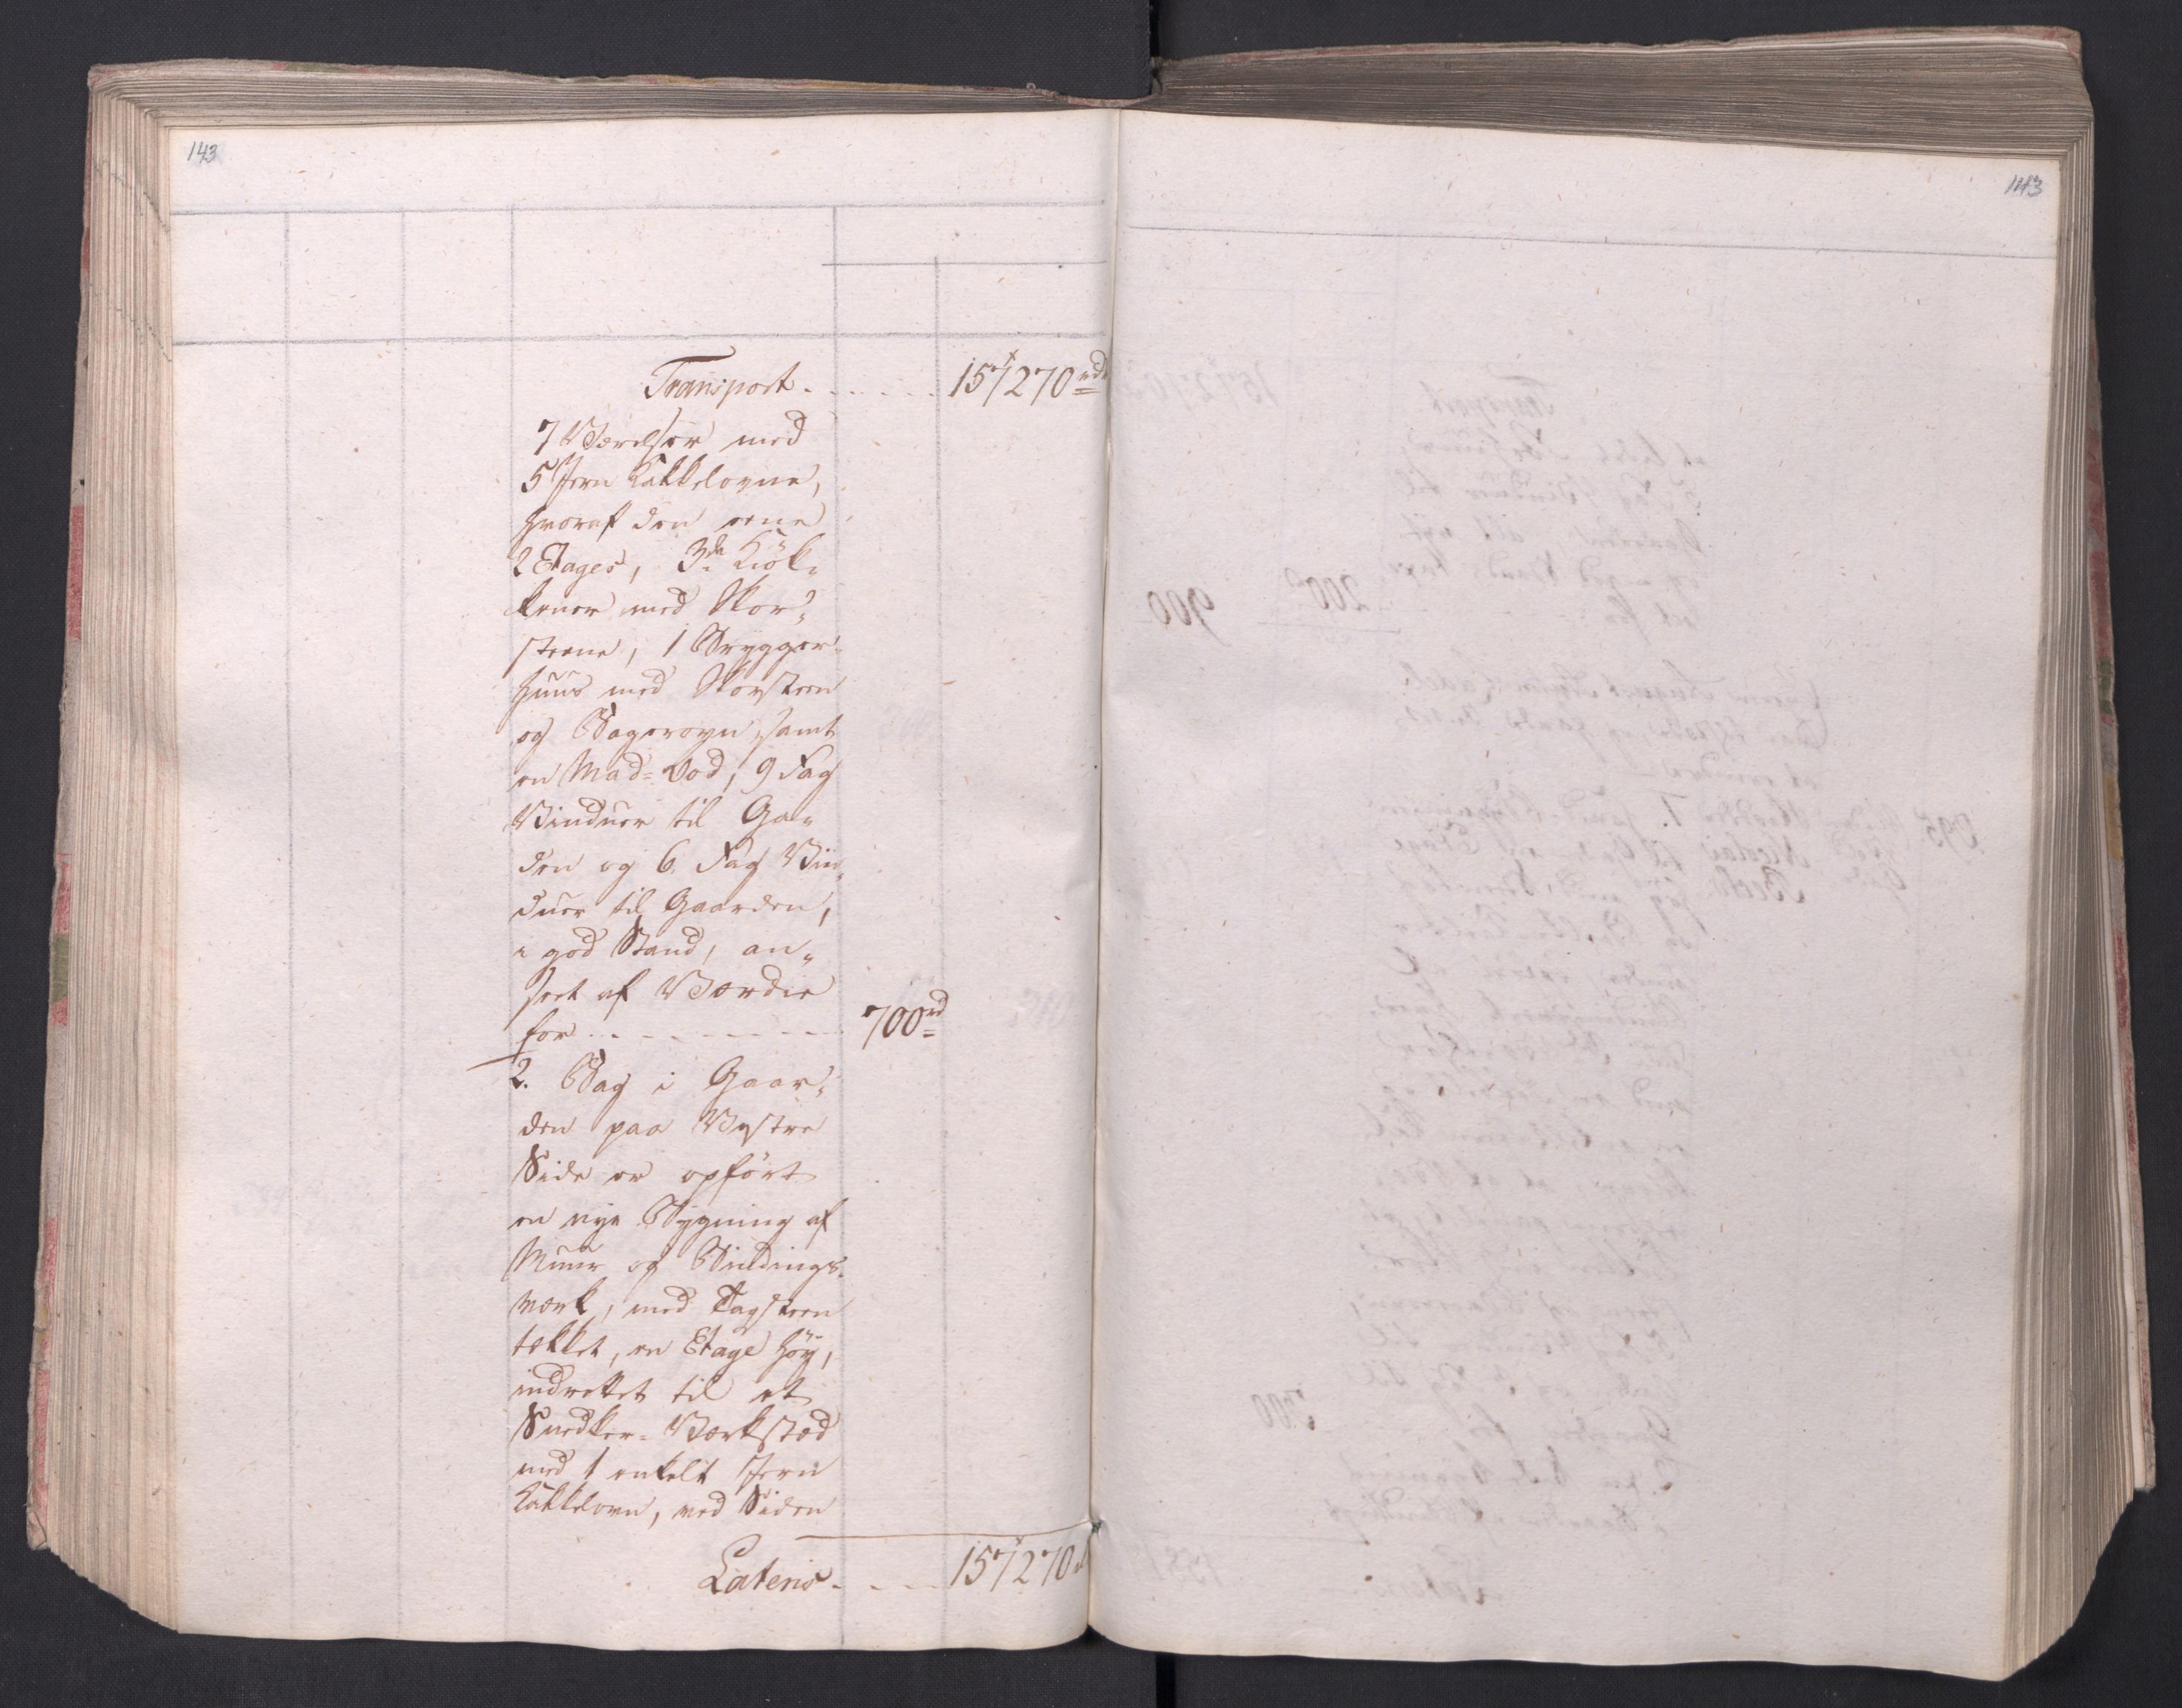 143
143
Transport . . . . . . 157270 rd
7 Værelser med
5 Jern Kakkelovne,
hvoraf den eene
2 Etages, 3de Kiök„
kener med Skor„
steene, 1 Brygger„
huus med Skorsteen
og Bagerovn, samt
en Mad-Bod, 9 Fag
Vinduer til Ga„
den og 6 Fag Vin„
duer til Gaarden,
i god Stand, an„
seet af Værdie
for . . - - - - - - 700 rd
2. Bag i Gaar„
den paa Vestre
Side er opfört
en nye Bygning af
Muur og Bindings„
værk, med Tagsteen
tækket, en Etage höy,
indrettet til et
Snedker-Værksted
med 1 enkelt Jern
Kakkelovn, ved Siden
Lateris . - - - 157270